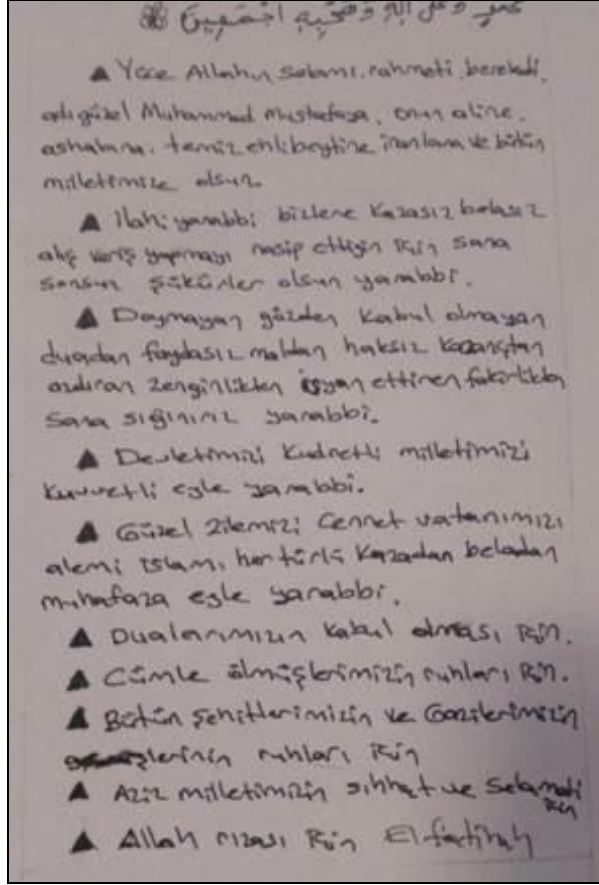 وعلى آله وصحبه أجمعين
▲ Yüce Allahın selamı, rahmeti, bereketi,
adı güzel Muhammed Mustafaya, onun aline,
ashabına, temiz ehlibeytine ve bütün
milletimize olsun.
▲ İlahi yarabbi bizlere kazasız belasız
alış veriş yapmayı nasip ettiğin için sana
sonsuz şükürler olsun yarabbi.
▲ Doymayan gözden kabul olmayan
duadan faydasız maldan haksız kazançtan
azdıran zenginlikten isyan ettiren fakirlikten
sana sığınırız yarabbi.
▲ Devletimizi kudretli milletimizi
kuvvetli eyle yarabbi.
▲ Güzel Zilemizi Cennet vatanımızı
alemi islamı her türlü kazadan beladan
muhafaza eyle yarabbi.
▲ Dualarımızın kabul olması için.
▲ Cümle ölmüşlerimizin ruhları için.
▲ Bütün Şehitlerimizin ve Gazilerimizin
ruhları için
▲ Aziz milletimizin sıhhat ve Selameti
için
▲ Allah rızası için El fatihah